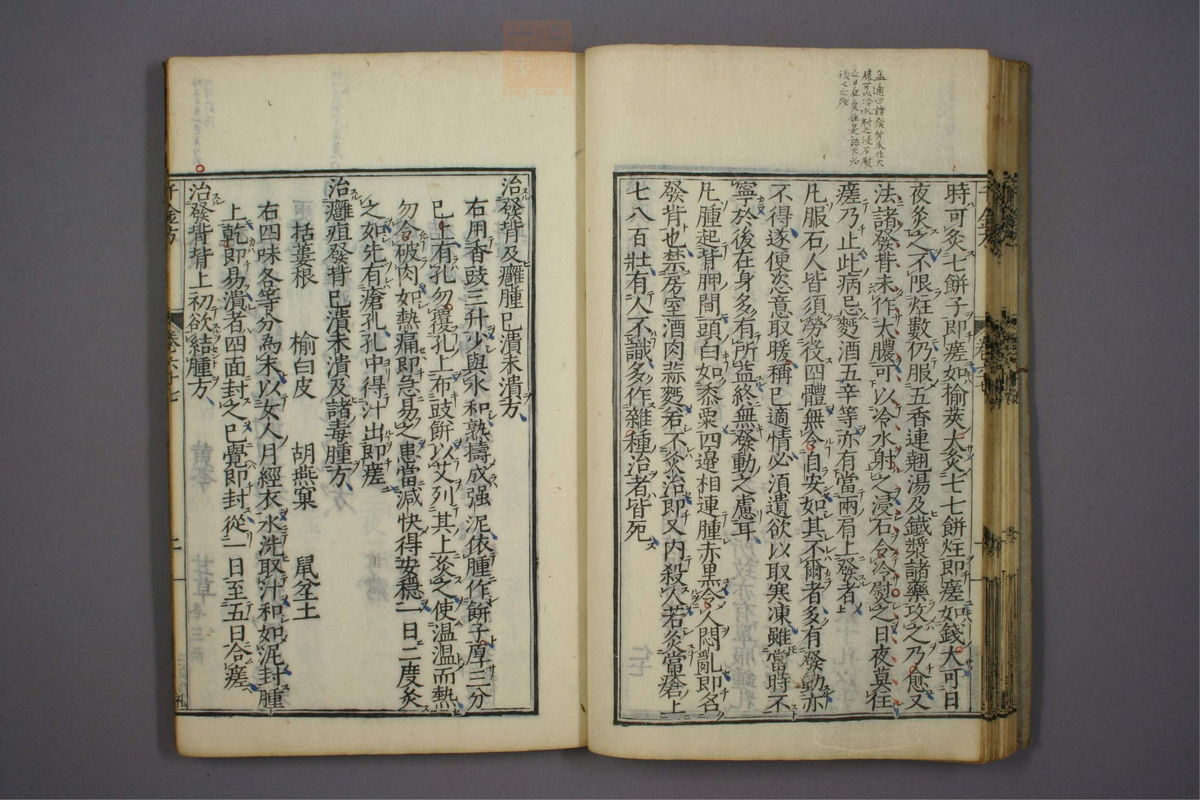 時可灸七餅子即瘥如榆莢大灸七七餅炷即瘥如錢大可日
夜灸之不限炷數仍服五香連翹湯及鐵漿諸藥攻之乃愈又
法諸發背未作大膿可以冷水射之浸石令冷熨之日夜莫住
瘥乃止此病忌麪酒五辛等亦有當兩肩上發者
凡服石人皆須勞役四體無令自安如其不爾者多有發動亦
不得遂便恣意取暖稱已適情必須遺欲以取寒凍雖當時不
寧於後在身多有所益終無發動之慮耳
凡腫起背胛間頭白如黍粟四邊相連腫赤黑令人悶亂即名
發背也禁房室酒肉蒜麪若不灸治即又內殺人若灸當瘡上
七八百壯有人不識多作雜種治者皆死
治發背及癰腫已潰未潰方
右用香豉三升少與水和熟擣成强泥依腫作餅子厚三分
已上有孔勿覆孔上布豉餅以艾列其上灸之使温温而熱
勿令破肉如熱痛即急易之患當減快得安穩一日二度灸
之如先有瘡孔孔中得汁出即瘥
治癰疽發背已潰未潰及諸毒腫方
栝蔞根 榆白皮 胡燕窠 鼠坌土
右四味各等分為末以女人月經衣水洗取汁和如泥封腫
上乾即易潰者四面封之已覺即封從一日至五日令瘥
治發背背上初欲結腫方